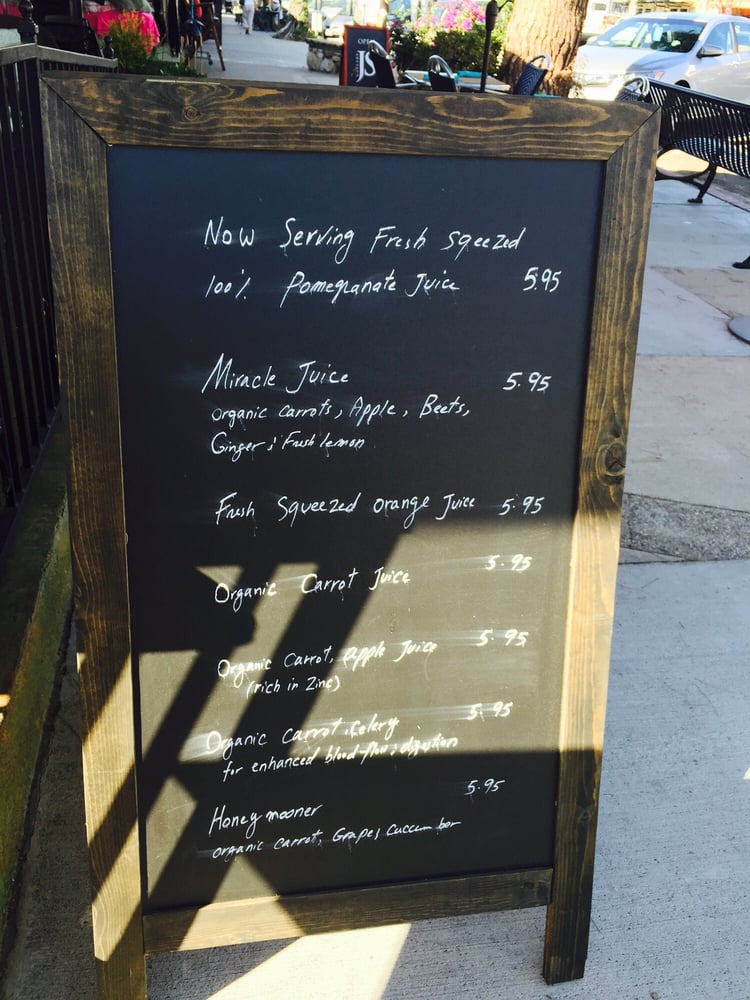 OPEN
JS
Now Serving Fresh sqeezed
100% Pomegranate Juice 5.95
Miracle Juice 5.95
organic carrots, Apple, Beets,
Ginger & Fresh lemon
Fresh Squeezed orange Juice 5.95
Organic Carrot Juice 5.95
Organic Carrot, apple Juice 5.95
(rich in Zinc)
Organic carrot, Celery 5.95
for enhanced blood flow & digestion
Honey mooner 5.95
organic carrot, Grapes cuccumber